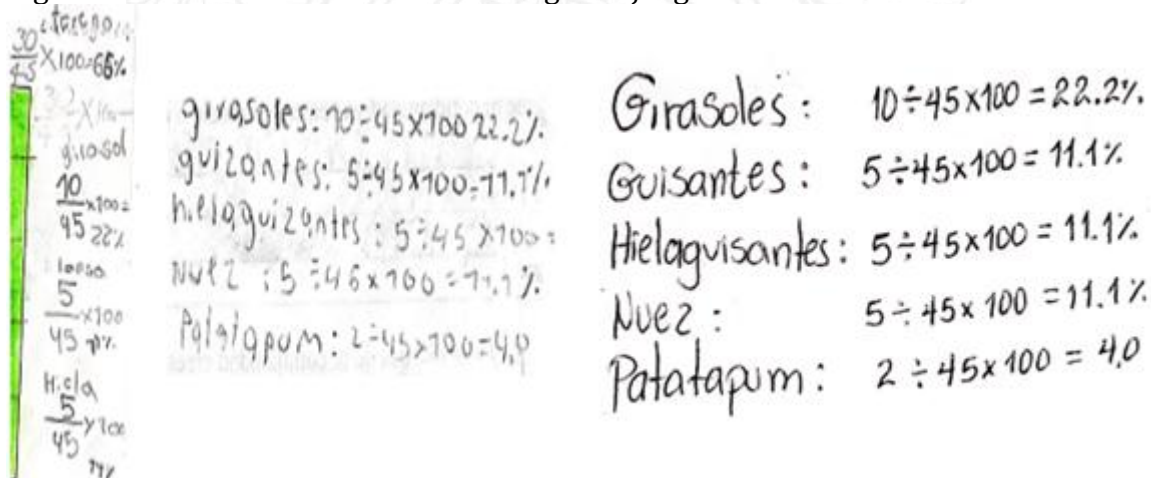 30
45 X100=66%
girosol
10
45 x100=
22%
5
45 x100
11%
Hiela
5
45 x100
11%
girasoles: 10÷45x100 22.2%
guizantes: 5÷45x100=11.1%
hielaguizantes: 5÷45x100=
Nuez: 5÷45x100=11.1%
Patatapum: 2÷45x100=4,0
Girasoles: 10÷45x100=22.2%
Guisantes: 5÷45x100=11.1%
Hielaguisantes: 5÷45x100=11.1%
Nuez: 5÷45x100=11.1%
Patatapum: 2÷45x100=4,0